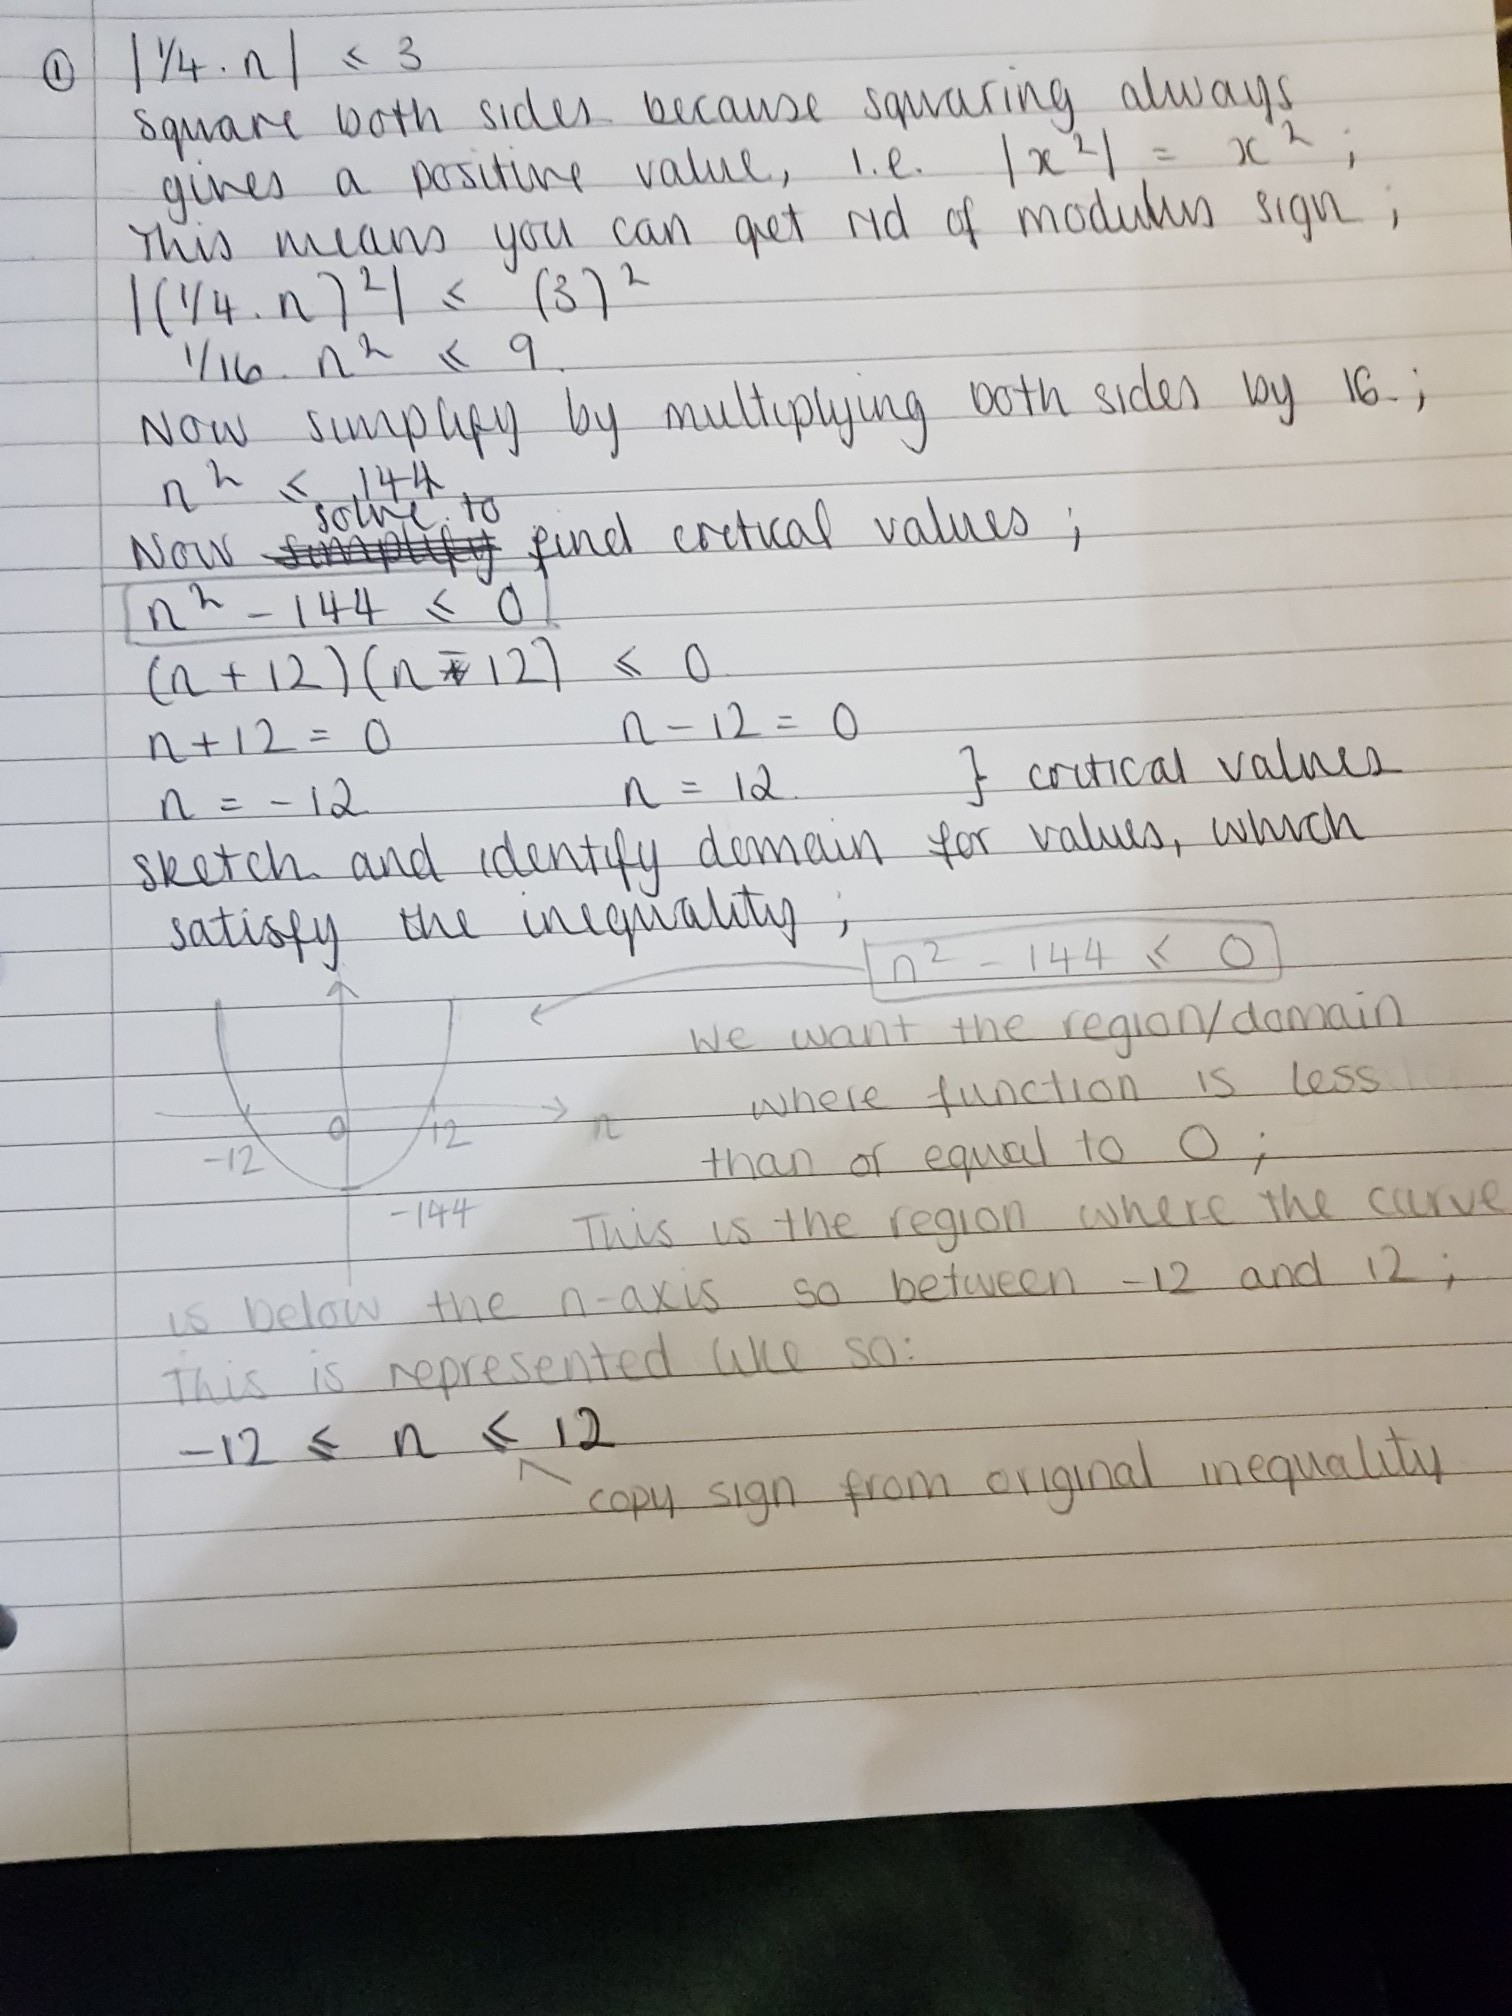 ① |1/4 . n| ≤ 3
square both sides because squaring always
gives a positive value, i.e. |x²| = x² ;
This means you can get rid of modulus sign ;
|(1/4 . n)²| ≤ (3)²
1/16 . n² ≤ 9
Now simplify by multiplying both sides by 16 ;
n² ≤ 144
solve to
Now simplify find critical values ;
n² - 144 ≤ 0
(n + 12)(n - 12) ≤ 0
n + 12 = 0 n - 12 = 0
n = -12 n = 12 } critical values
sketch and identify domain for values, which
satisfy the inequality ;
n² - 144 ≤ 0
We want the region/domain
where function is less
-12 0 12 n
than or equal to 0 ;
-144
This is the region where the curve
is below the n-axis so between -12 and 12 ;
This is represented like so:
-12 ≤ n ≤ 12
copy sign from original inequality